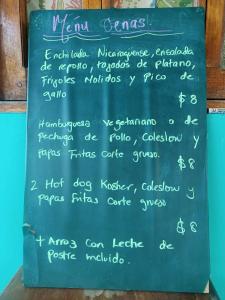 Menu Cenas.
Enchilada Nicaraguense, ensalada
de repollo, tajadas de platano,
Frijoles Molidos y Pico de
gallo
$8
Hamburguesa Vegetariana o de
Pechuga de Pollo, Coleslow y
Papas Fritas Corte grueso.
$8
2 Hot dog Kosher, Coleslow y
papas Fritas Corte grueso
$8
+ Arroz con Leche de
Postre incluido.